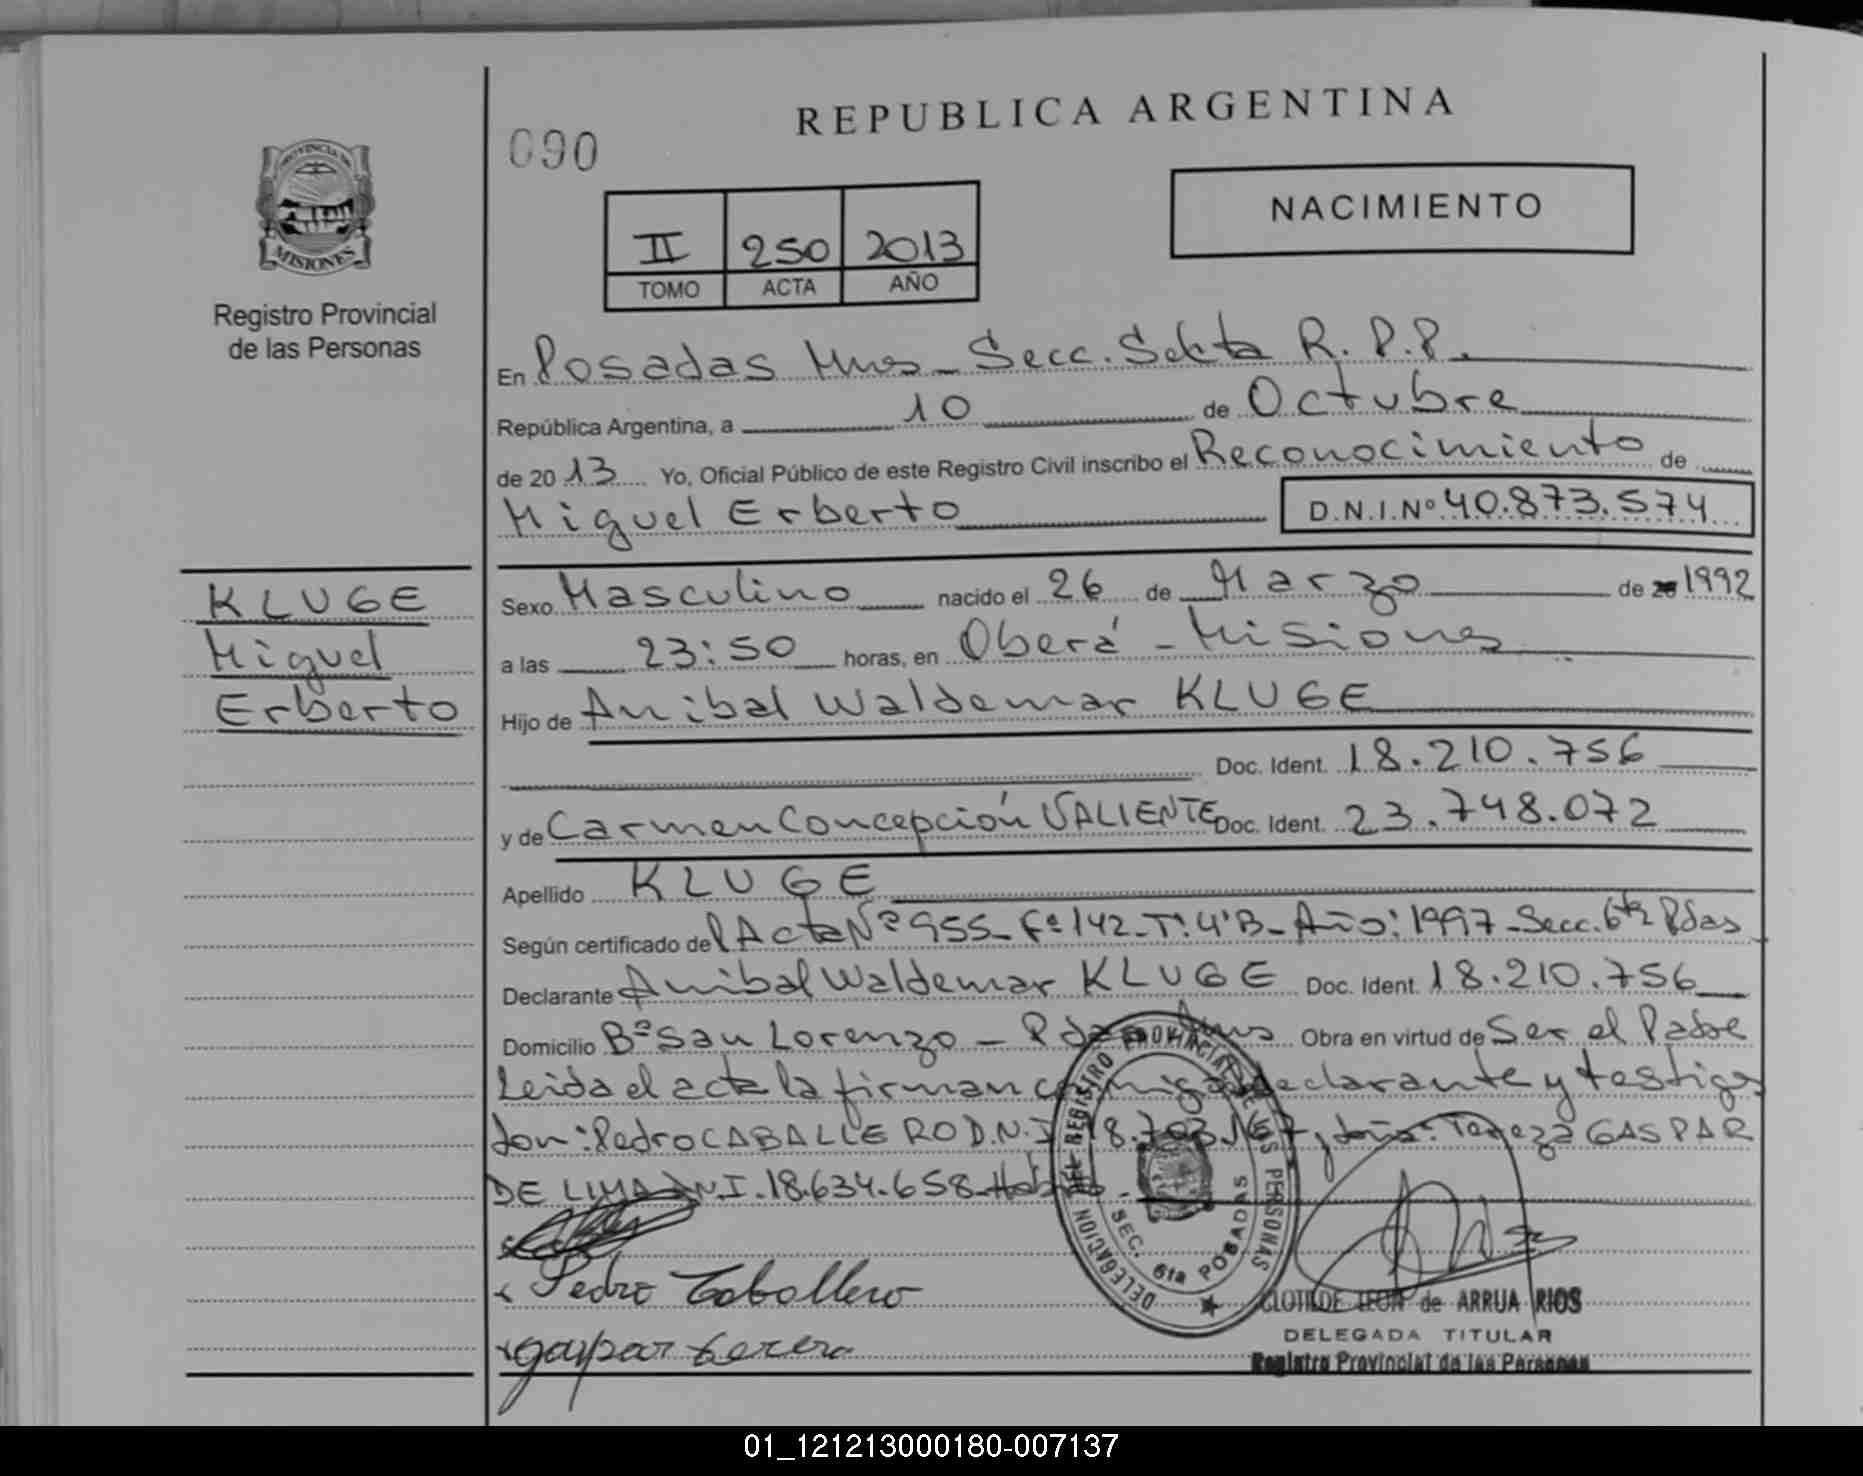 REPUBLICA ARGENTINA
090
NACIMIENTO
II 250 2013
TOMO ACTA AÑO
PROVINCIA DE
MISIONES
Registro Provincial
de las Personas
En Posadas Mnes - Secc. Sexta R.P.P.
República Argentina, a 10 de Octubre
de 2013 Yo, Oficial Público de este Registro Civil inscribo el Reconocimiento de
Miguel Erberto D.N.I.Nº 40.873.574
KLUGE
Miguel
Erberto
Sexo Masculino nacido el 26 de Marzo de 1992
a las 23:50 horas, en Oberá - Misiones
Hijo de Anibal Waldemar KLUGE
Doc. Ident. 18.210.756
y de Carmen Concepción VALIENTE Doc. Ident. 23.748.072
Apellido KLUGE
Según certificado de Acta Nº 955 - Fº 142 - Tº 4º B - Año: 1997 - Secc. 6ta Pdas
Declarante Anibal Waldemar KLUGE Doc. Ident. 18.210.756
Domicilio Bº San Lorenzo - Pdas Mnes Obra en virtud de Ser el Padre
Leida el acta la firman conmigo declarante y testigos
don: Pedro CABALLERO D.N.I 18.703.167 y doña: Tereza GASPAR
DE LIMA DNI. 18.634.658 -
Pedro Caballero
gaspar terera
DELEGACION DEL REGISTRO PROVINCIAL DE LAS PERSONAS
SEC. 6ta POSADAS
CLOTILDE LEON de ARRUA RIOS
DELEGADA TITULAR
Registro Provincial de las Personas
01_121213000180-007137